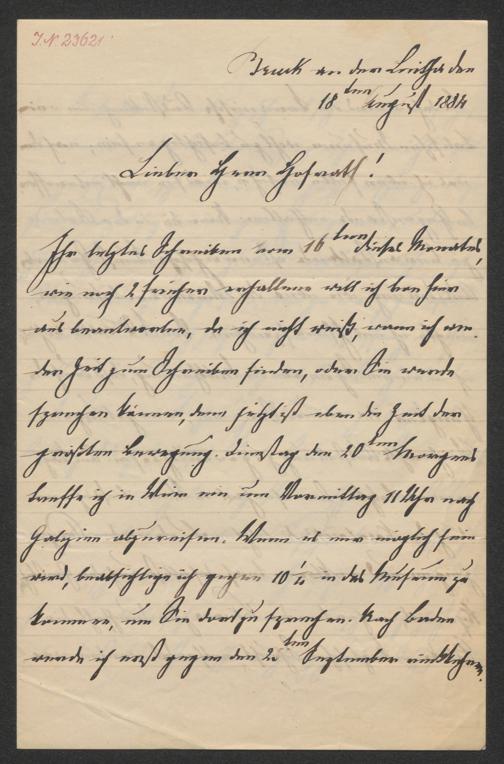 J.N. 23621
Bruck an der Leitha den
18ten August 1884
Lieber Herr Hofrath!
Ihr letztes Schreiben vom 16ten dieses Monates,
wie noch 2 früher erhaltene will ich von hier
aus beantworten, da ich nicht weiß, wann ich wie-
der Zeit zum Schreiben finden, oder Sie werde
sprechen können, denn jetzt ist eben die Zeit der
größten Bewegung. Dinstag den 20ten Morgens
treffe ich in Wien ein um Vormittag 11 Uhr nach
Galizien abzureisen. Wenn es mir möglich sein
wird, beabsichtige ich gegen 10½ in das Museum zu
kommen, um Sie dort zu sprechen. Nach Baden
werde ich erst gegen den 2ten September einkehren.